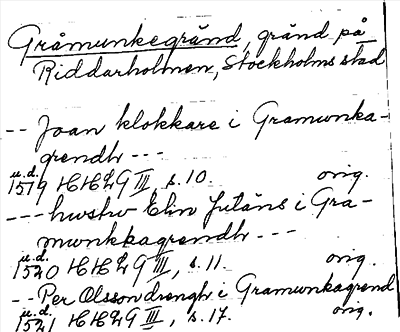 Gråmunkegränd, gränd på
Riddarholmen, Stockholms stad
-- Joan klokkare i Gramunka-
grendh ---
u.d.
1519 HHLG III, s. 10. orig.
--- hustrv Elin Jutäns i Gra-
munkkagrendh ---
u.d.
1520 HHLG III, s. 11. orig.
-- Per Olsson drengh i Gramunkagrend
u.d.
1521 HHLG III, s. 17. orig.